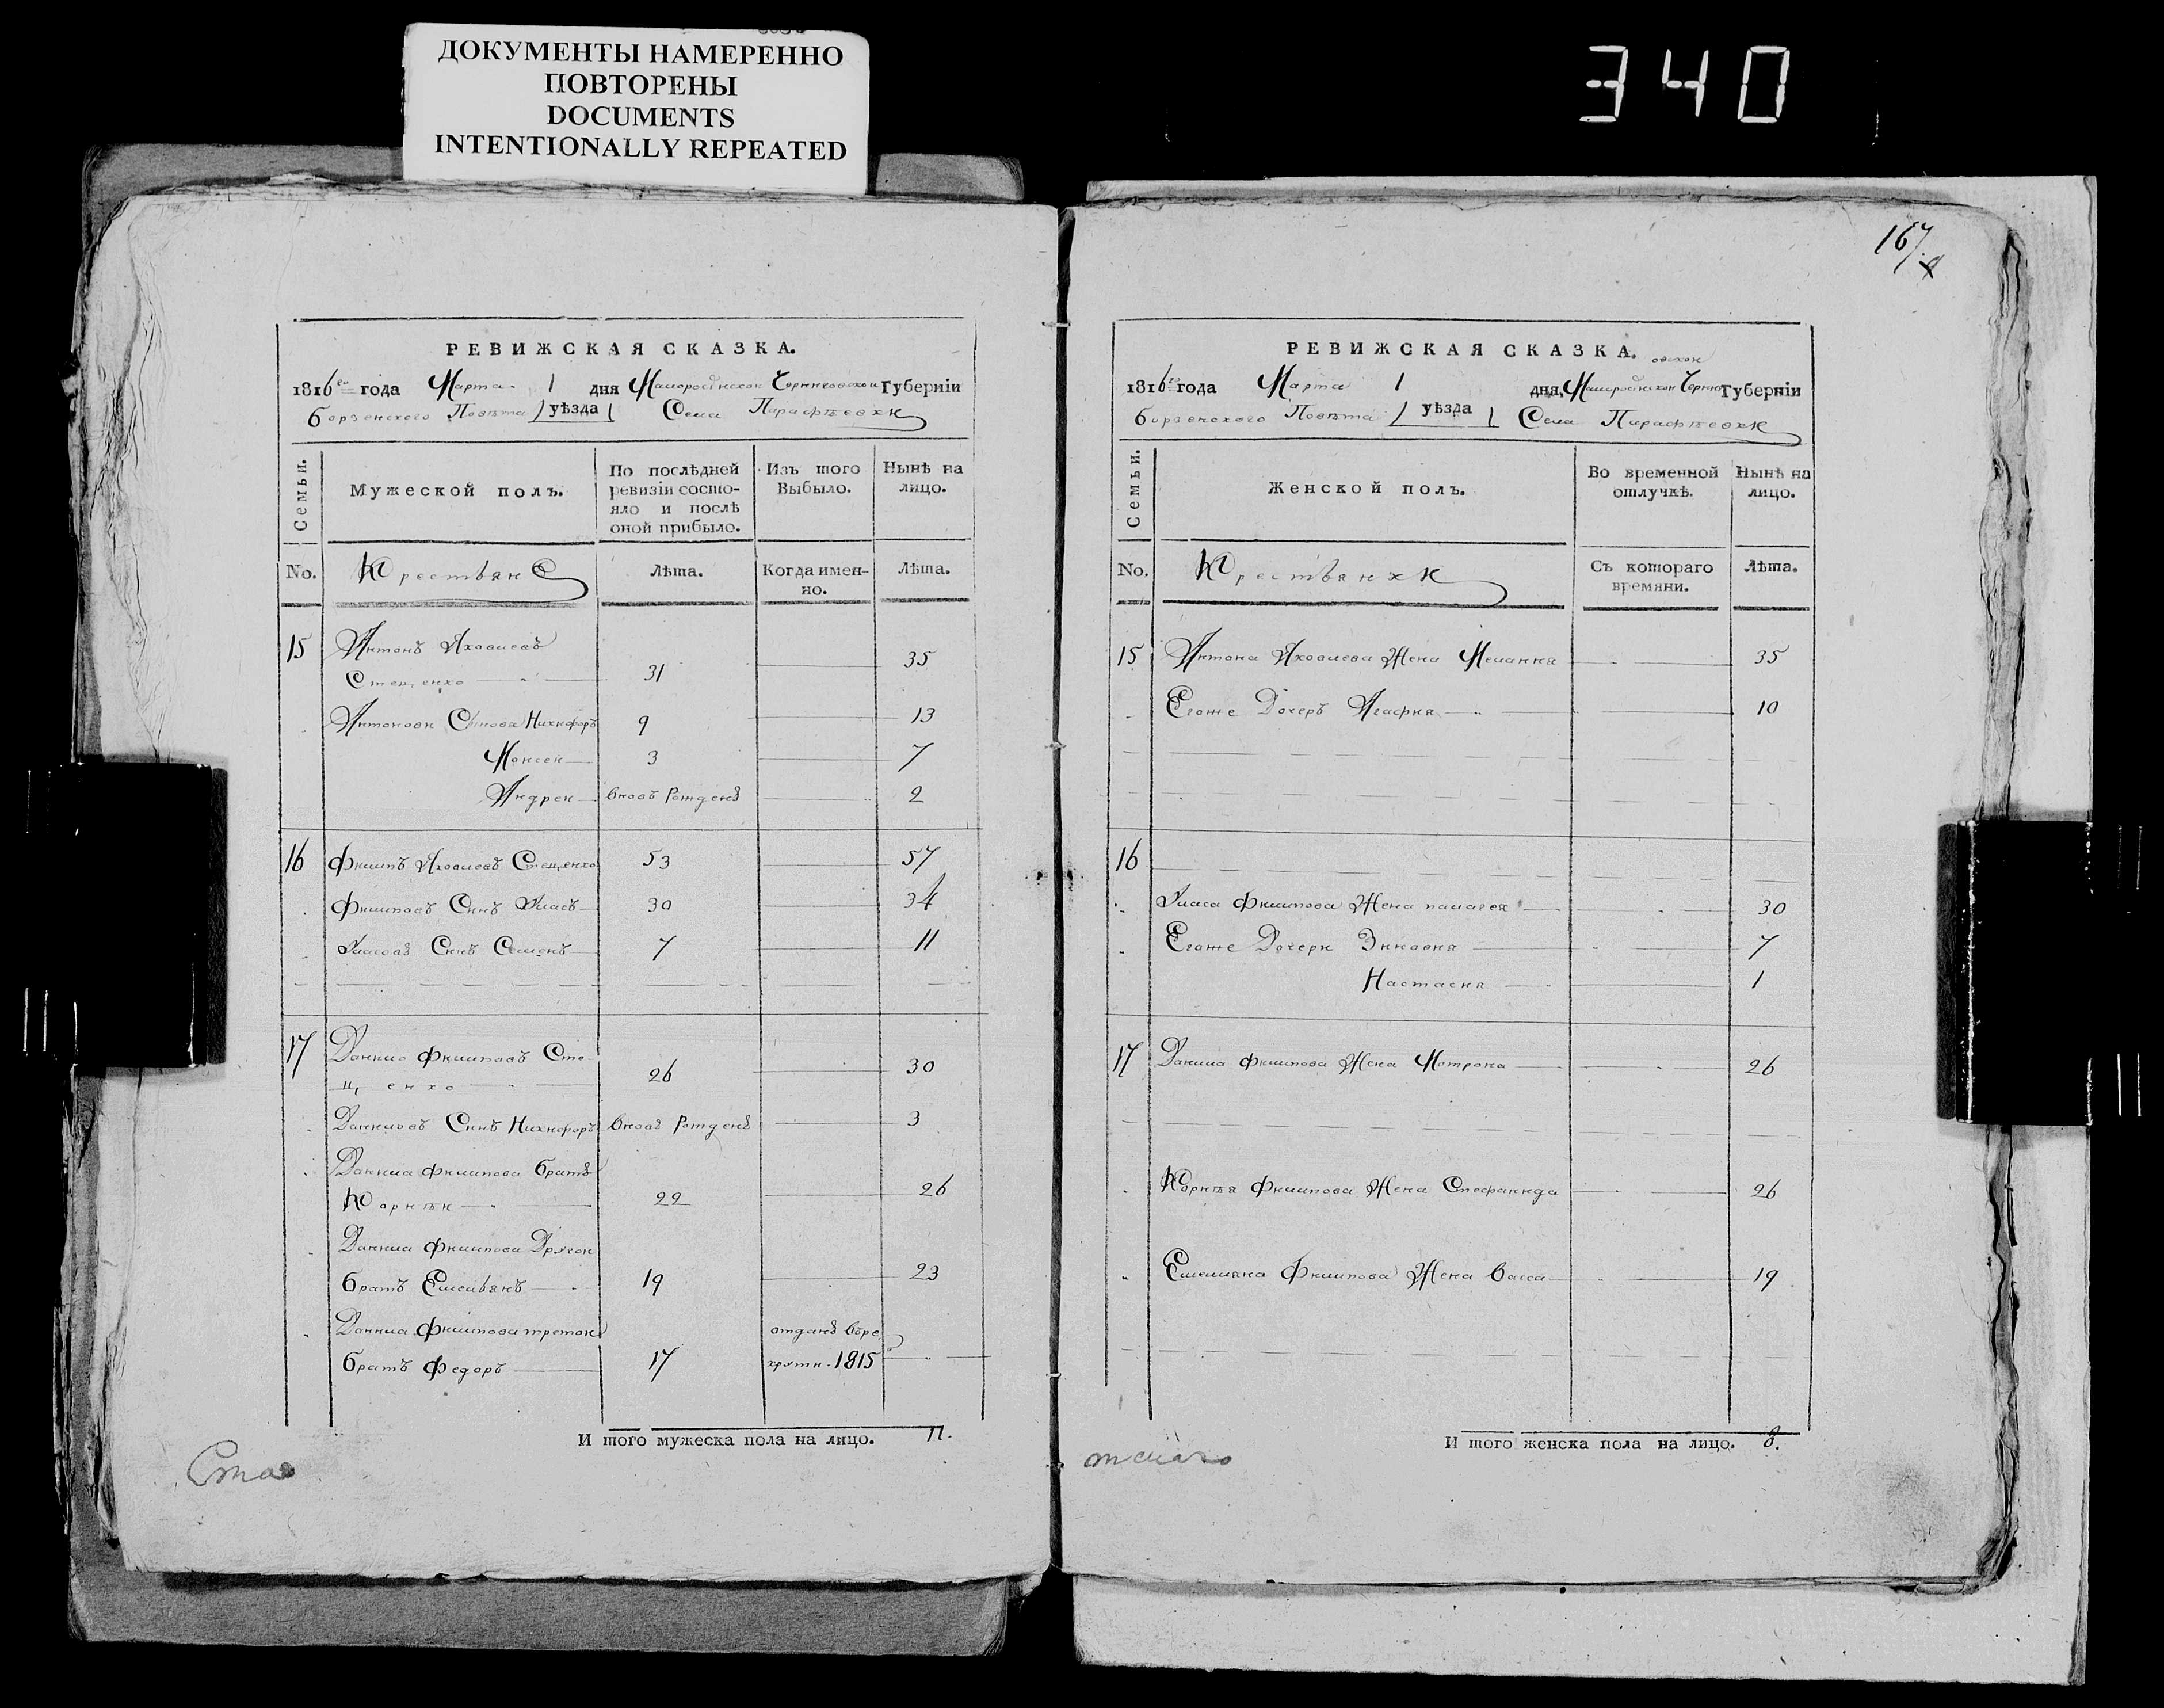 ДОКУМЕНТЫ НАМЕРЕННО
ПОВТОРЕНЫ
DOCUMENTS
INTENTIONALLY REPEATED
340
РЕВИЖСКАЯ СКАЗКА.
1816го года Марта 1 дня Малоросійской Черниговской Губерніи
Борзенского Повѣта уѣзда Села Парафѣевки
Семьи.
Мужеской полъ.
По послѣдней ревизіи состояло и послѣ оной прибыло.
Изъ того Выбыло.
Нынѣ на лицо.
No. Крестьяне Лѣта. Когда именно. Лѣта.
15 Антонъ Яковлевъ
Стеценко 31 35
Антоновы Сынова Никифоръ 9 13
Моисей 3 7
Андрей вновь рожденъ 2
16 Филипъ Яковлевъ Стеценко 53 57
Филиповъ Сынъ Власъ 30 34
Власовъ Сынъ Семенъ 7 11
17 Данило Филиповъ Сте-
ценко 26 30
Даниловъ Сынъ Никифоръ вновь рожденъ 3
Данила Филипова братъ
Корнѣй 22 26
Данила Филипова Другой
братъ Емельянъ 19 23
Данила Филипова третой отданъ въ ре
братъ Федоръ 17 круты 1815
И того мужеска пола на лицо. 11.
167
РЕВИЖСКАЯ СКАЗКА.
овской
1816го года Марта 1 дня, Малоросійской Черниг Губерніи
Борзенского Повѣта уѣзда Села Парафѣевки
Семьи.
Женской полъ.
Во временной отлучкѣ.
Нынѣ на лицо.
No. Крестьянки Съ котораго времяни. Лѣта.
15 Антона Яковлева Жена Мелания 35
Егоже Дочеръ Агафия 10
16
Власа Филипова Жена палагея 30
Егоже Дочери Зиновия 7
Настасия 1
17 Данила Филипова Жена Мотрона 26
Корнѣя Филипова Жена Стефанида 26
Емеляна Филипова Жена Васса 19
И того женска пола на лицо. 8.